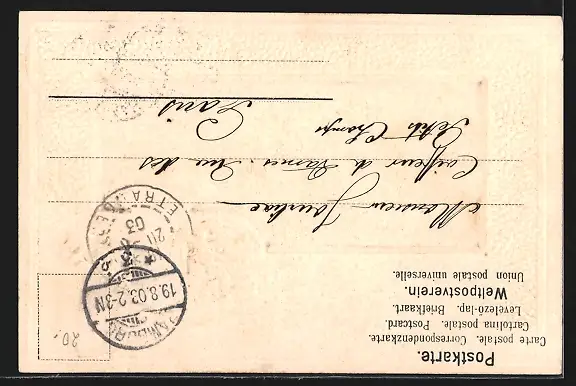 Postkarte.
Carte postale. Correspondenzkarte.
Cartolina postale. Postcard.
Levelező-lap. Briefkaart.
Weltpostverein.
Union postale universelle.
19.8.03.2-3N
ETRANGER
03
20.
Monsieur
Coiffeur de Dames. Rue des
Petits Champs
Paris